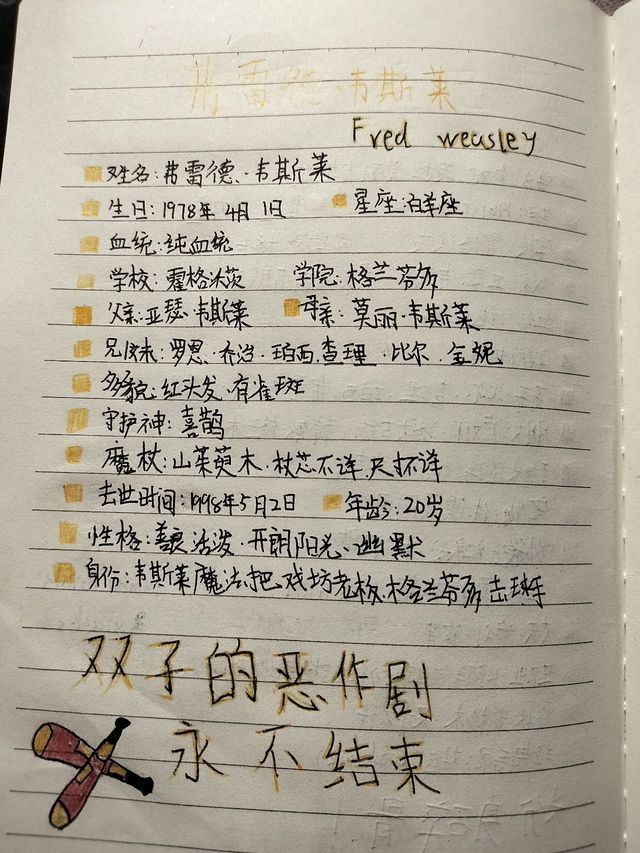 弗雷德·韦斯莱
Fred weasley
姓名:弗雷德·韦斯莱
生日:1978年4月1日 星座:白羊座
血统:纯血统
学校:霍格沃茨 学院:格兰芬多
父亲:亚瑟·韦斯莱 母亲:莫丽·韦斯莱
兄妹:罗恩·乔治·珀西·查理·比尔·金妮
外貌:红头发·有雀斑
守护神:喜鹊
魔杖:山茱萸木·杖芯不详·尺寸不详
去世时间:1998年5月2日 年龄:20岁
性格:善良活泼·开朗阳光、幽默
身份:韦斯莱魔法把戏坊老板·格兰芬多击球手
双子的恶作剧
永不结束